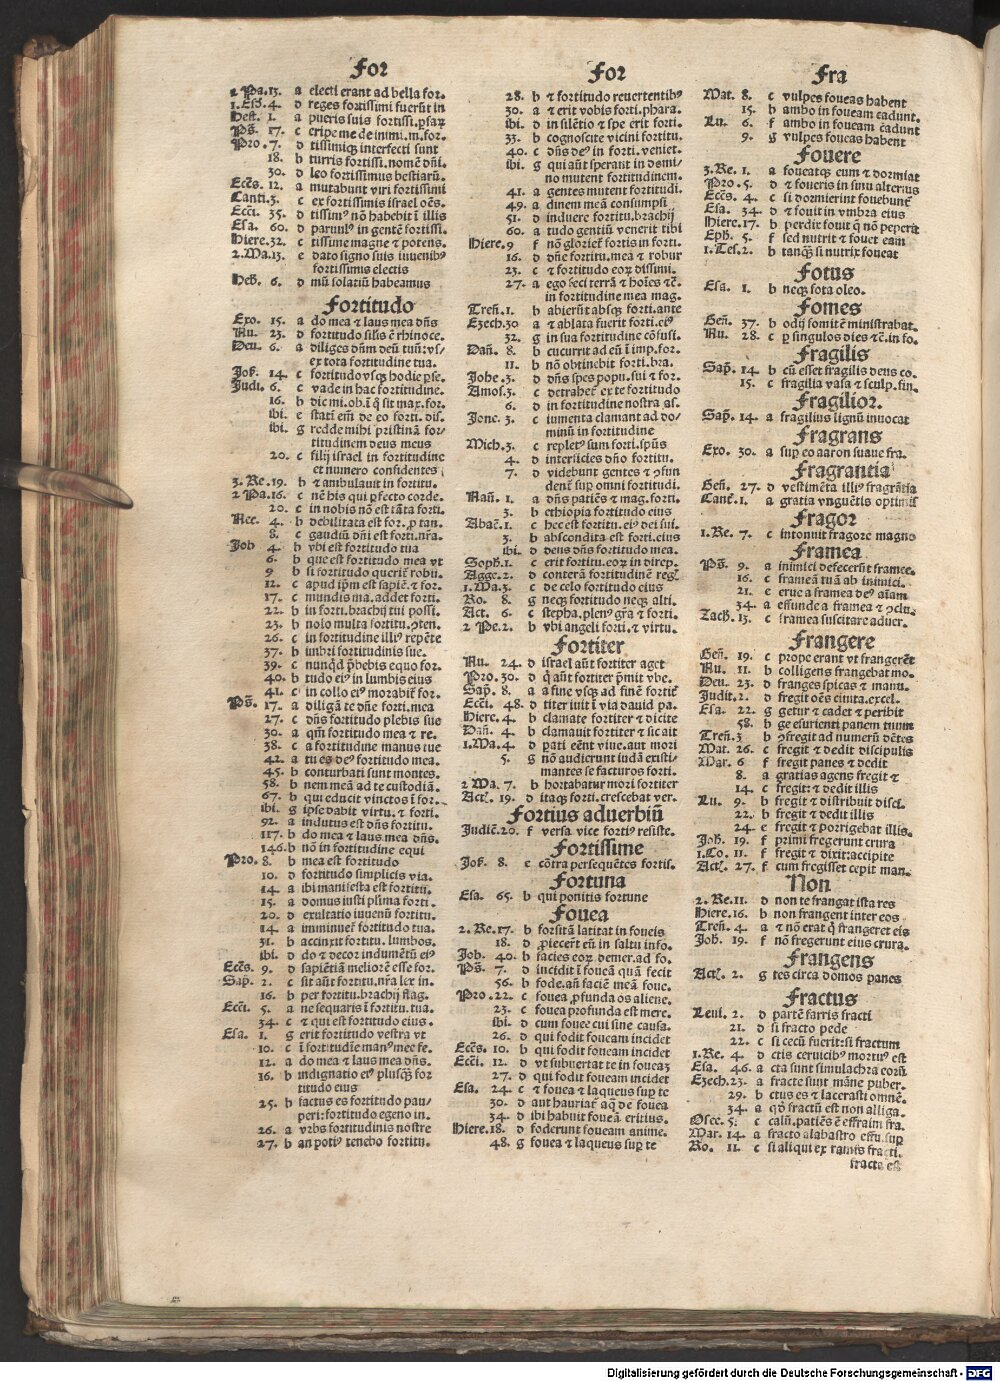 For
2 Pa.13. a electi erant ad bella for.
1.Esd. 4. d reges fortissimi fuerūt in
Hest. 1. a pueris suis fortissi.ꝑsaꝝ
Ps̄. 17. c eripe me de inimi.m.for.
Pro. 7. d tissimiqꝫ interfecti sunt
18. b turris fortissi.nomē dn̄i.
30. d leo fortissimus bestiarū.
Ecc̄s. 12. a mutabunt viri fortissimi
Canti.3. c ex fortissimis israel oēs.
Ecc̄i. 35. d tissimꝰ nō habebit ī illis
Esa. 60. d paruulꝰ in gentē fortissi.
Hiere.32. c tissime magne ⁊ potens.
2.Ma.13. e dato signo suis iuuenibꝰ
fortissimis electis
Heb̄. 6. d mū solatiū habeamus
Fortitudo
Exo. 15. a do mea ⁊ laus mea dn̄s
Nu. 23. d fortitudo silis ē rhinoce.
Deu. 6. a diliges dn̄m deū tuū:vs/
ex tota fortitudine tua.
Jos. 14. c fortitudo vsqꝫ hodie ꝑse.
Judi. 6. c vade in hac fortitudine.
16. b dic mi.ob.ī q̄ sit max.for.
ibi. e statī em̄ de eo forti. dis.
ibi. g redde mihi pristinā for/
titudinem deus meus
20. c filij israel in fortitudine
et numero confidentes
3. Re.19. b ⁊ ambulauit in fortitu.
2 Pa.16. c nē his qui ꝑfecto corde.
20. c in nobis nō est tāta forti.
Nee. 4. b debilitata est for.ꝓ tan.
8. c gaudiū dn̄i est forti.nr̄a.
Job 4. b vbi est fortitudo tua
6. b que est fortitudo mea vt
9 b si fortitudo querit̄ robu.
12. c apud ip̄m est sapiē.⁊ for.
17. c mundis ma.addet forti.
22. b in forti.brachij tui possi.
23. b nolo multa fortitu.ꝯten.
26. c in fortitudine illiꝰ repēte
37. b imbri fortitudinis sue.
39. c nunqd̄ p̄bebis equo for.
40. b tudo eiꝰ in lumbis eius
41. c in collo eiꝰ morabit̄ for.
Ps̄. 17. a diligā te dn̄e forti.mea
27. c dn̄s fortitudo plebis sue
30. a qm̄ fortitudo mea ⁊ re.
38. c a fortitudine manus tue
42. a tu es deꝰ fortitudo mea.
45. b conturbati sunt montes.
58. b nem meā ad te custodiā.
67. b qui educit vinctos ī for.
ibi. g ipse dabit virtu. ⁊ forti.
92. a indutus est dn̄s fortitu.
117. b do mea ⁊ laus mea dn̄s.
146. b nō in fortitudine equi
Pro. 8. b mea est fortitudo
10. d fortitudo simplicis via.
14. a ibi manifesta est fortitu.
15. a domus iusti pl̄ima forti.
20. d exultatio iuuenū fortitu.
14. a imminuet̄ fortitudo tua.
31. b accinxit fortitu. lumbos.
ibi. d do ⁊ decor indumētū eiꝰ
Ecc̄s. 9. d sapiētiā meliorē esse for.
Sap. 2. c sit aūt fortitu.nr̄a lex in.
16. b per fortitu.brachij flag.
Ecc̄i. 5. a ne sequaris ī fortitu.tua.
34. c ⁊ qui est fortitudo eius.
Esa. 1. g erit fortitudo vestra vt
10. c ī fortitudīe manꝰ mee fe.
12. a do mea ⁊ laus mea dn̄s.
16. b indignatio eiꝰ plusqꝫ for
titudo eius
25. b factus es fortitudo pau/
peri:fortitudo egeno in.
26. a vrbs fortitudinis nostre
27. b an potiꝰ tenebo fortitu.
For
28. b ⁊ fortitudo reuertentibꝰ
30. a ⁊ erit vobis forti.phara.
ibi. d in silētio ⁊ spe erit forti.
33. b cognoscite vicini fortitu.
40. c dn̄s deꝰ in forti.veniet.
ibi. g qui aūt sperant in domi/
no mutent fortitudinem.
41. a gentes mutent fortitudi.
49. a dinem meā consumpsi
51. d induere fortitu.brachij
60. a tudo gentiū venerit tibi
Hiere.9 f nō gloriet̄ fortis in forti.
16. d dn̄e fortitu.mea ⁊ robur
23. c ⁊ fortitudo eoꝝ dissimi.
27. a ego feci terrā ⁊ hoīes ⁊ē.
in fortitudine mea mag.
Tren̄.1. b abierūt absqꝫ forti.ante
Ezech.30 a ⁊ ablata fuerit forti.eiꝰ
32. g in sua fortitudine cōfusi.
Dan̄. 8. b cucurrit ad eū ī imp.for.
11. b nō obtinebit forti.bra.
Johe.3. d dn̄s spes popu.sui ⁊ for.
Amos.3. c detrahet̄ ex te fortitudo
6. d in fortitudine nostra as.
Jone. 3. c iumenta clamant ad do/
minū in fortitudine
Mich.3. c repletꝰ sum forti.sp̄us
4. d interficies dn̄o fortitu.
7. d videbunt gentes ⁊ ꝯfun
dent̄ sup̄ omni fortitudi.
Nau̅. 1. a dn̄s patiēs ⁊ mag.forti.
3. b ethiopia fortitudo eius
Abac̄.1. c hec est fortitu.eiꝰ dei sui.
3. b abscondita est forti.eius
ibi. d deus dn̄s fortitudo mea.
Soph.1. c erit fortitu.eoꝝ in direp.
Agge.2. d conterā fortitudinē reg.
1.Ma.3. c de celo fortitudo eius
Ro. 8. g neqꝫ fortitudo neqꝫ alti.
Act. 6. c stepha.plenꝰ gr̄a ⁊ forti.
2 Pe.2. b vbi angeli forti.⁊ virtu.
Fortiter
Nu. 24. d israel aūt fortiter aget
Pro.30. d q̄ aūt fortiter p̄mit vbe.
Sap̄. 8. a a fine vsqꝫ ad finē fortit̄
Ecc̄i. 48. d titer iuit ī via dauid pa.
Hiere. 4. b clamate fortiter ⁊ dicite
Dan̄. 4. b clamauit fortiter ⁊ sic ait
1.Ma.4. d parati eēnt viue.aut mori
5. g nō audierunt iudā existi/
mantes se facturos forti.
2 Ma. 7. b hortabatur mori fortiter
Act̄. 19. d itaqꝫ forti.crescebat ver.
Fortius aduerbiū
Judic̄.20. f versa vice fortiꝰ resiste.
Fortissime
Jos. 8. e cōtra persequētes fortis.
Fortuna
Esa. 65. b qui ponitis fortune
Fouea
2. Re.17. b forsitā latitat in foueis
18. d ꝓiecer̄t eū in saltu info.
Job. 40. b facies eoꝝ demer.ad fo.
Ps̄. 7. d incidit ī foueā quā fecit
56. b fode.an̄ faciē meā foue.
Pro.22. c fouea ꝓfunda os aliene.
23. c fouea profunda est mere.
ibi. d cum fouee cui sine causa.
26. d qui fodit foueam incidet
Ecc̄s. 10. b qui fodit foueam incidet
Ecc̄i. 12. d vt subuertat te in foueaꝫ
27. d qui fodit foueam incidet
Esa. 24. c ⁊ fouea ⁊ laqueus sup̄ te
30. d aut hauriat̄ aq̄ de fouea
34. d ibi habuit foueā eritius.
Hiere.18. d foderunt foueam anime.
48. g fouea ⁊ laqueus sup̄ te
Fra
Mat. 8. c vulpes foueas habent
15. b ambo in foueam cadunt.
Lu. 6. f ambo in foueam cadunt
9. g vulpes foueas habent
Fouere
3.Re. 1. a foueatqꝫ eum ⁊ dormiat
Pro. 5. d ⁊ foueris in sinu alterius
Ecc̄s. 4. c si dormierint fouebunt̄
Esa. 34. d ⁊ fouit in vmbra eius
Hiere.17. b perdix fouit q̄ nō peperit
Eph̄. 5. f sed nutrit ⁊ fouet eam
1.Tes.2. b tanqꝫ si nutrix foueat
Fotus
Esa. 1. b neqꝫ fota oleo.
Fomes
Gen̄. 37. b odij fomitē ministrabat.
Nu. 28. c ꝑ singulos dies ⁊ē.in fo.
Fragilis
Sap̄. 14. b cū esset fragilis deus co.
15. c fragilia vasa ⁊ sculp.fin.
Fragilior.
Sap̄. 14. a fragilius lignū inuocat
Fragrans
Exo. 30. a sup̄ eo aaron suaue fra.
Fragrantia
Gen̄. 27. d vestimēta illiꝰ fragrātia
Cant̄.1. a gratia vnguētis optimis
Fragor
1.Re. 7. c intonuit fragore magno
Framea
Ps̄. 9. a inimici defecerūt framee.
16. c frameā tuā ab inimici.
21. c erue a framea deꝰ aīam
34. a effunde a framea ⁊ ꝯclu.
Zach̄. 13. c framea suscitare aduer.
Frangere
Gen̄. 19. c prope erant vt frangerēt
Nu. 11. b colligens frangebat mo.
Deu. 23. d franges spicas ⁊ manu.
Judit.2. d fregit oēs ciuita.excel.
Esa. 22. g getur ⁊ cadet ⁊ peribit
58. b ge esurienti panem tuum
Tren̄.3 b ꝯfregit ad numerū dētes
Mat. 26. c fregit ⁊ dedit discipulis
Mar. 6 f fregit panes ⁊ dedit
8. a gratias agens fregit ⁊
14. c fregit: ⁊ dedit illis
Lu. 9. b fregit ⁊ distribuit disci.
22. b fregit ⁊ dedit illis
24. e fregit ⁊ porrigebat illis.
Joh̄. 19. f primi fregerunt crura
1.Co. 11. f fregit ⁊ dixit:accipite
Act̄. 27. f cum fregisset cepit man.
Non
2. Re.11. d non te frangat ista res
Hiere.16. b non frangent inter eos
Tren̄. 4. a ⁊ nō erat q̄ frangeret eis
Joh̄. 19. f nō fregerunt eius crura.
Frangens
Act̄. 2. g tes circa domos panes
Fractus
Leui. 2. d partē farris fracti
21. d si fracto pede
22. c si cecū fuerit:si fractum
1.Re. 4. d ctis ceruicibꝰ mortuꝰ est
Esa. 46. a cta sunt simulachra eorū.
Ezech.23. a fracte sunt māne puber.
29. b ctus es ⁊ lacerasti omnē.
34. a qd̄ fractū est non alliga.
Osee. 5. c calū.patiēs ē effraim fra.
Mar. 14. a fracto alabastro effu.sup̄
Ro. 11. c si aliqui ex ramis fracti.
fracta es
Digitalisierung gefördert durch die Deutsche Forschungsgemeinschaft - DFG